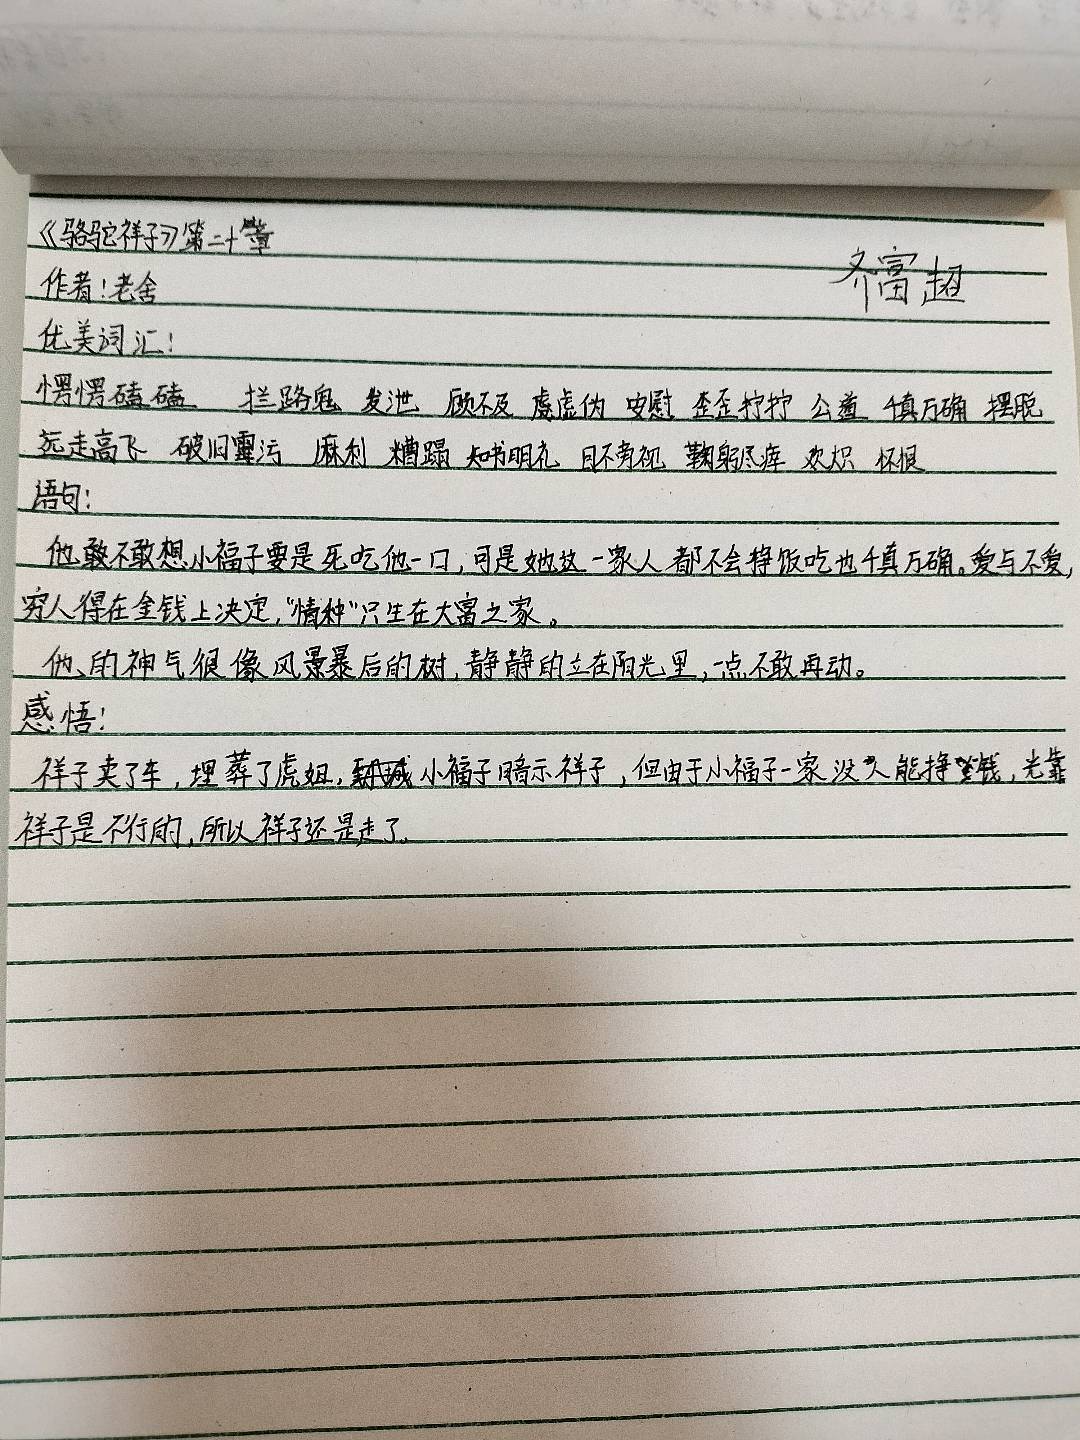 《骆驼祥子》第二十章
齐富超
作者:老舍
优美词汇:
愣愣磕磕 拦路鬼 发泄 顾不及 虚伪 安慰 歪歪拧拧 公道 千真万确 摆脱
远走高飞 破旧霉污 麻利 糟蹋 知书明礼 目不旁视 鞠躬尽瘁 欢炽 怀恨
语句:
他敢不敢想小福子要是死吃他一口,可是她这一家人都不会挣饭吃也千真万确。爱与不爱,
穷人得在金钱上决定,“情种”只生在大富之家。
他的神气很像风暴后的树,静静的立在阳光里,一点不敢再动。
感悟:
祥子卖了车,埋葬了虎妞,小福子暗示祥子,但由于小福子一家没人能挣钱,光靠
祥子是不行的,所以祥子还是走了。